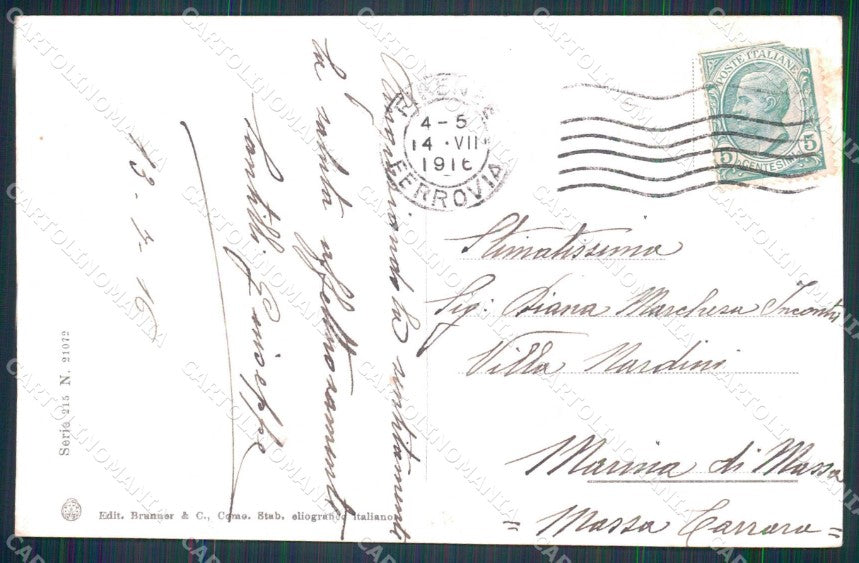 Ricambiando La sentitamente
La saluta affettuosamente
Santilli Giuseppe
13-7-16
FERROVIA
4-5
14 · VII
1916
POSTE ITALIANE
5 CENTESIMI 5
Stimatissima
Sig: Diana Marchesa Incontri
Villa Nardini
Marina di Massa
= Massa Carrara =
Serie 215 N. 21072
Edit. Brunner & C., Como. Stab. eliografico italiano
CARTOLINOMANIA